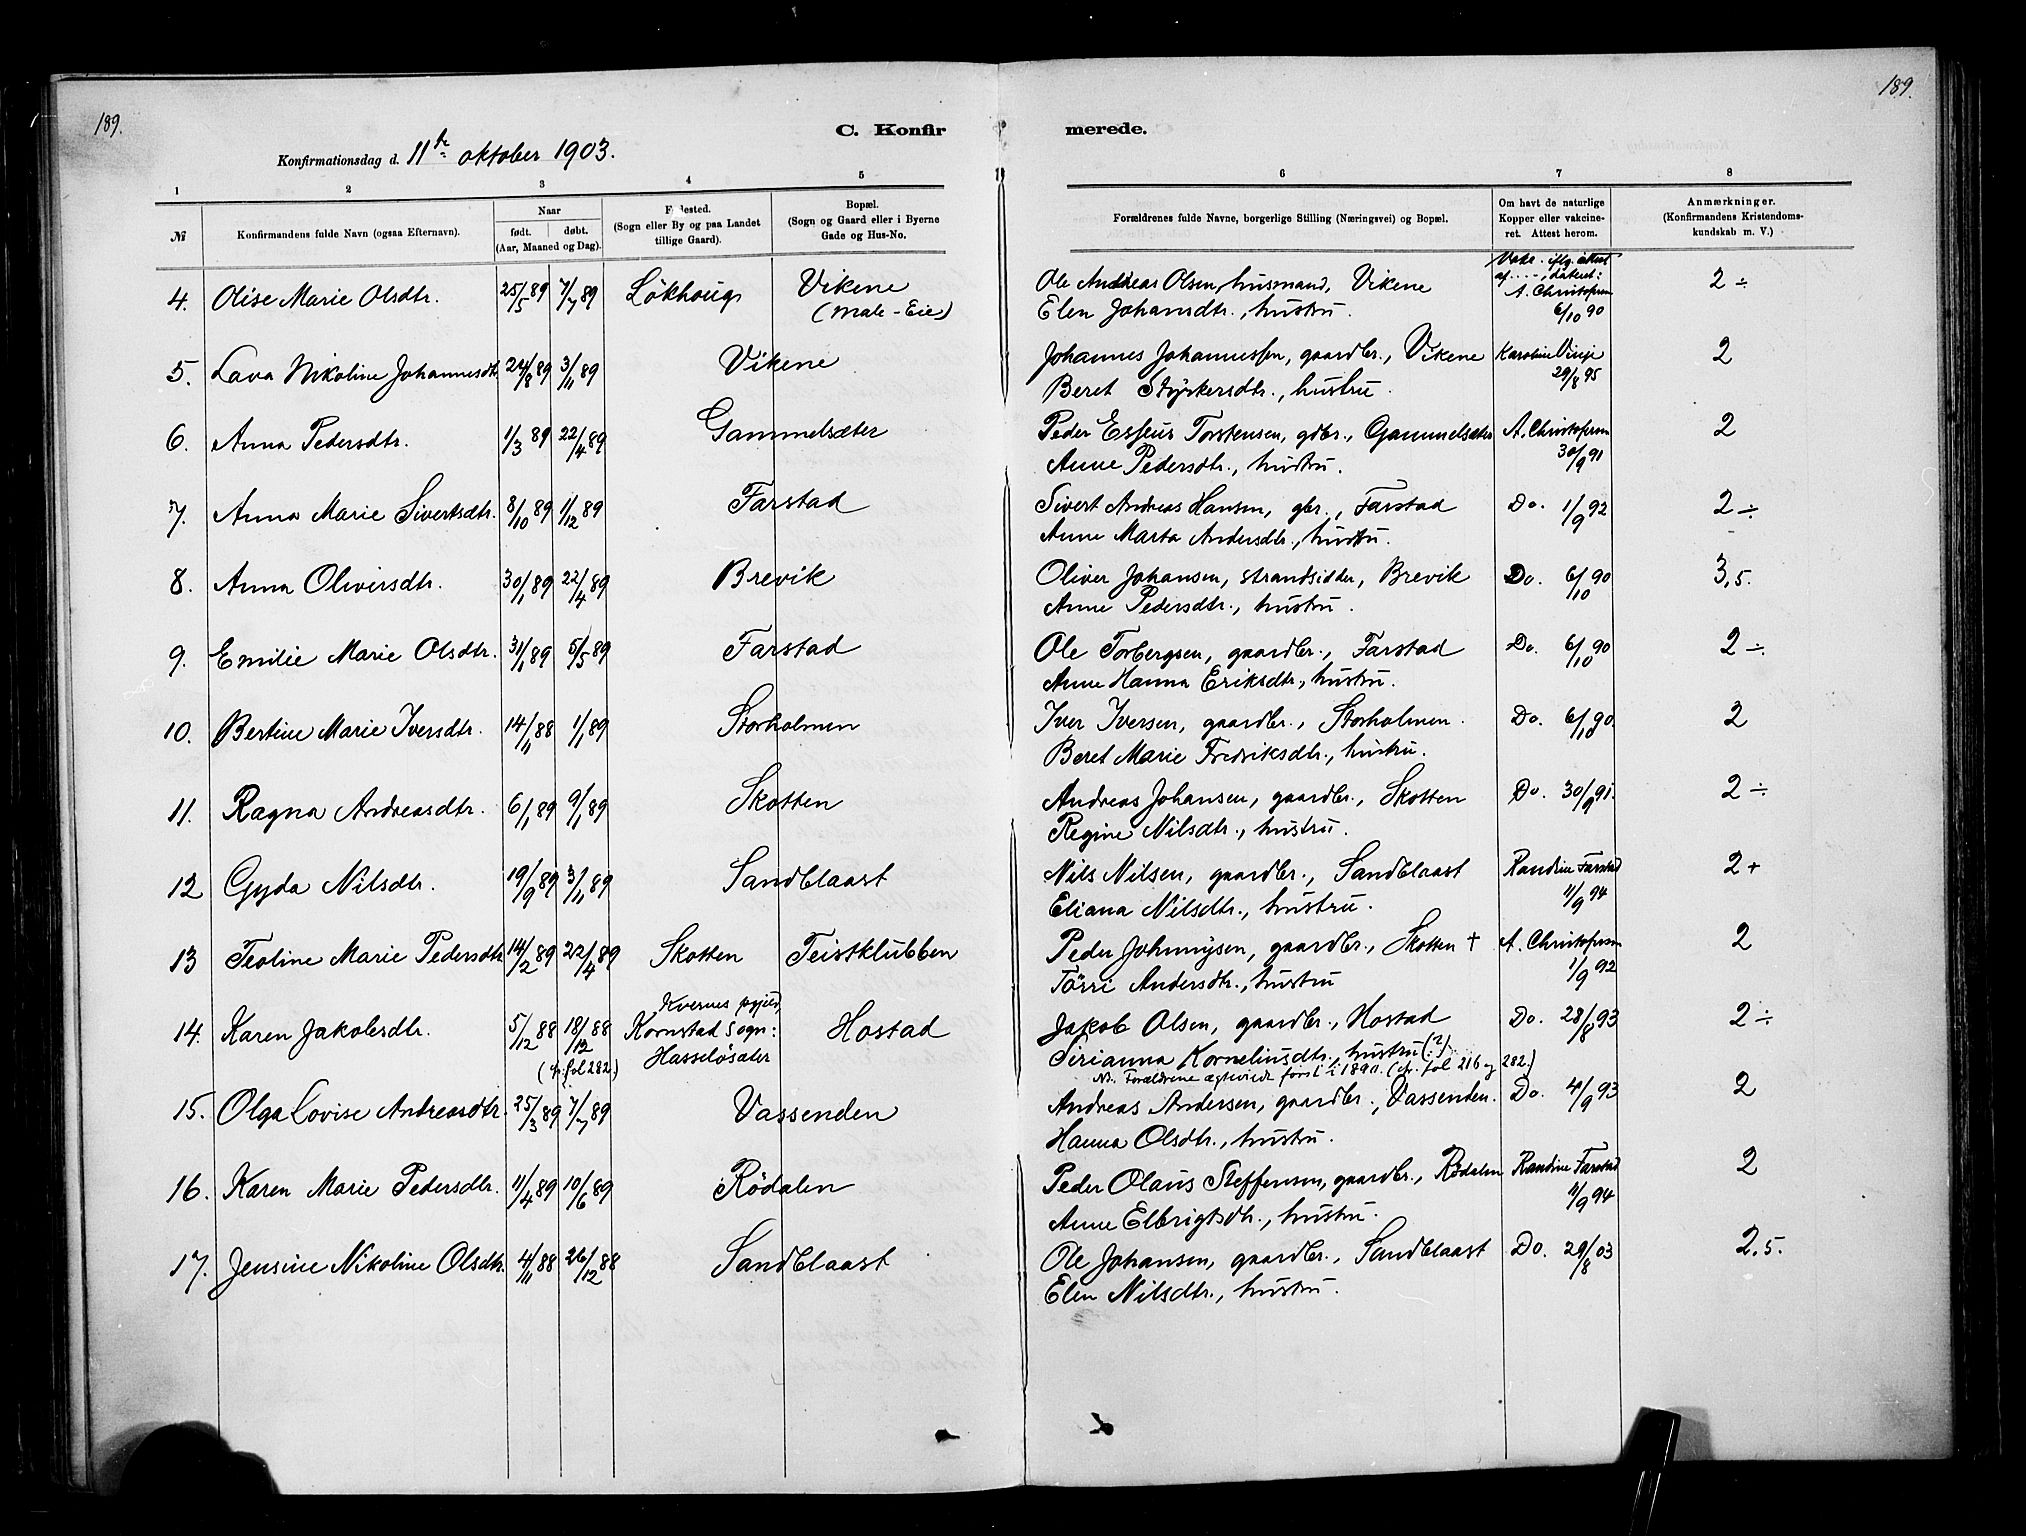 189.
189.
C. Konfir merede.
Konfirmationsdag d. 11te oktober 1903.
1 2 3 4 5 6 7 8
№
Konfirmandens fulde Navn (ogsaa Efternavn).
Naar
født. døbt.
(Aar, Maaned og Dag).
Fødested.
(Sogn eller By og paa Landet
tillige Gaard).
Bopæl.
(Sogn og Gaard eller i Byerne
Gade og Hus-No.
Forældrenes fulde Navne, borgerlige Stilling (Næringsvei) og Bopæl.
Om havt de naturlige
Kopper eller vakcine-
ret. Attest herom.
Anmærkninger.
(Konfirmandens Kristendoms-
kundskab m. V.)
4. Olise Marie Olsdtr. 25/5 89 7/7 89 Løkhoug Vikene Ole Andreas Olsen, husmand, Vikene Vakc. iflg. attest 2 ÷
af ...., dateret:
(Male-Eie) Elen Johansdtr., hustru. A. Christofersen
6/10 90
5. Lava Nikoline Johannesdtr. 24/8 89 3/11 89 Vikene Johannes Johannessen, gaardbr., Vikene Karoline Vinje 2
Beret Styrkersdtr., hustru. 29/8 95
6. Anna Pedersdtr. 1/3 89 22/4 89 Gammelsæter Peder Esseus Torstensen, gdbr., Gammelsæter A. Christofersen 2
Anne Pedersdtr., hustru. 30/9 91
7. Anna Marie Sivertsdtr. 8/10 89 1/12 89 Farstad Sivert Andreas Hansen, gbr., Farstad Do. 1/9 92 2 ÷
Anne Marta Andersdtr., hustru.
8. Anna Oliversdtr. 30/1 89 22/4 89 Brevik Oliver Johansen, strandsidder, Brevik Do. 6/10 90 3,5.
Anne Pedersdtr., hustru.
9. Emilie Marie Olsdtr. 31/1 89 5/5 89 Farstad Ole Torbergsen, gaardbr., Farstad Do. 6/10 90 2 ÷
Anne Hanna Eriksdtr., hustru.
10. Bertine Marie Iversdtr. 14/11 88 1/1 89 Storholmen Iver Iversen, gaardbr., Storholmen. Do. 6/10 90. 2
Beret Marie Fredriksdtr., hustru.
11. Ragna Andreasdtr. 6/1 89 9/1 89 Skotten Andreas Johansen, gaardbr., Skotten Do. 30/9 91. 2 ÷
Regine Nilsdtr., hustru.
12 Gyda Nilsdtr. 19/9 89 3/11 89 Sandblaast Nils Nilsen, gaardbr., Sandblaast Randine Farstad 2 +
Eliana Nilsdtr., hustru. 11/9 94
13 Teoline Marie Pedersdtr 14/2 89 22/4 89 Skotten Teistklubben Peder Johnnysen, gaardbr., Skotten † A. Christofersen 2
Törri Andersdtr., hustru 1/9 92
Kvernes pgjeld,
14. Karen Jakobsdtr. 5/12 88 18/12 88 Kornstad Sogn: Hostad Jakob Olsen, gaardbr., Hostad Do. 28/8 93 2 ÷
(cfr. fol 282.) Hasseløsæter Sirianna Kornelinsdtr., hustru (?)
NB. Forældrene ægteviede først i 1890. (cfr. fol 216 og 282.)
15. Olga Lovise Andreasdtr. 25/3 89 7/7 89 Vassenden Andreas Andersen, gaardbr., Vassenden. Do. 4/9 93 2
Hanna Olsdtr., hustru.
16. Karen Marie Pedersdtr. 11/4 89 10/6 89 Rødalen Peder Olaus Steffensen, gaardbr., Rødalen Randine Farstad 2
Anne Elbrigtsdtr., hustru. 11/9 94
17. Jensine Nikoline Olsdtr. 4/11 88 26/12 88 Sandblaast Ole Johansen, gaardbr., Sandblaast Do. 29/8 03 2,5.
Elen Nilsdtr., hustru.